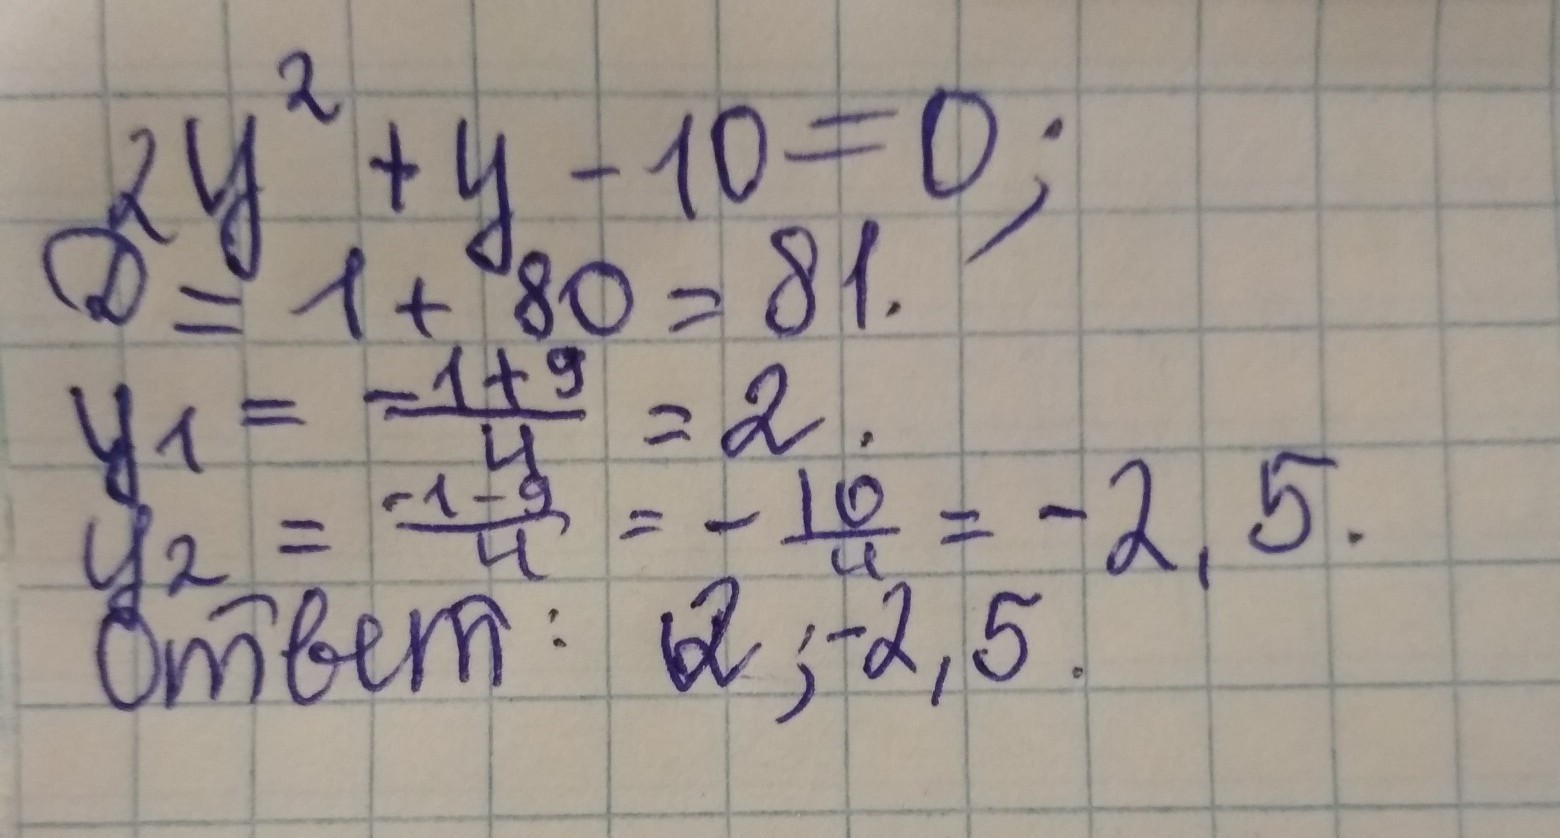 2y² + y - 10 = 0;
D = 1 + 80 = 81.
y1 = (-1+9)/4 = 2.
y2 = (-1-9)/4 = -10/4 = -2,5.
Ответ: 2; -2,5.